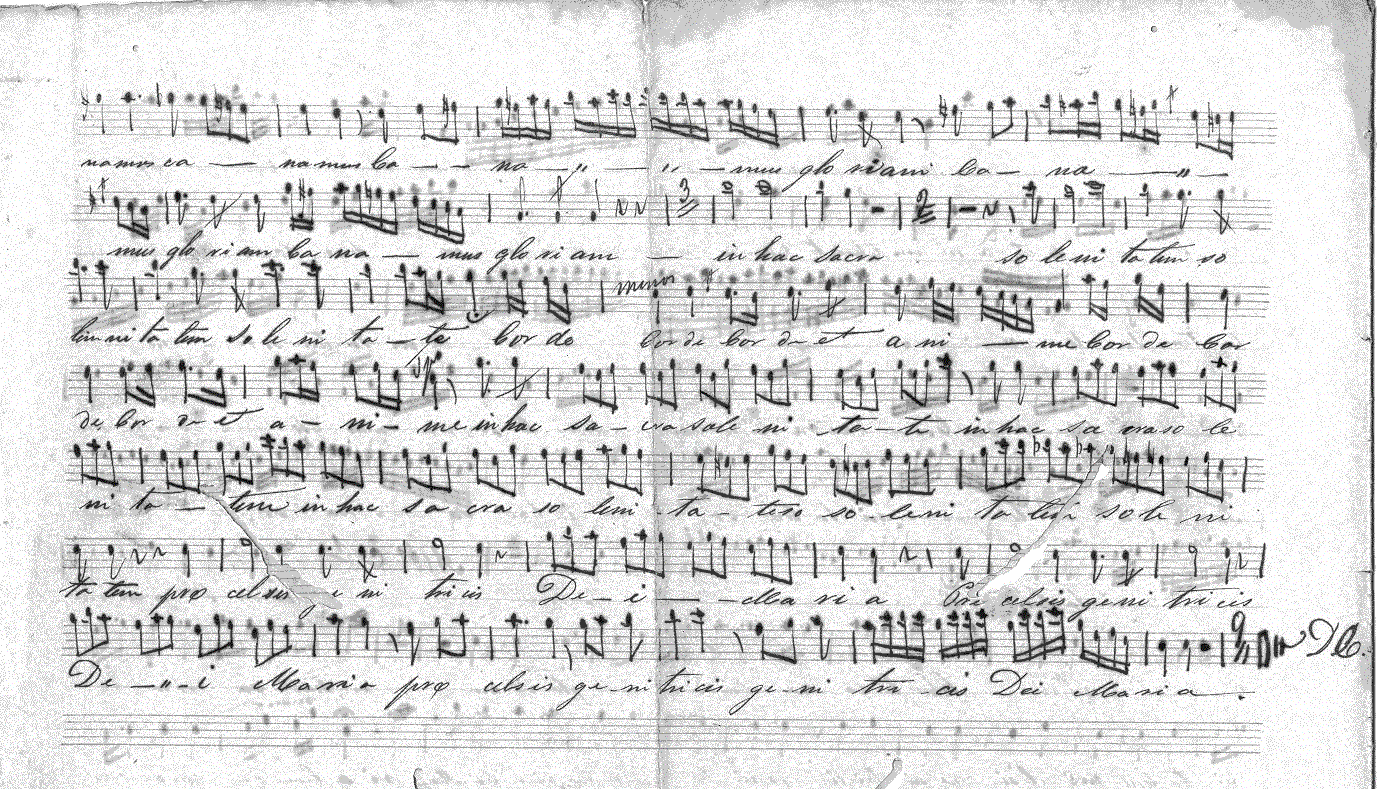 namus ca — namus ca — — na — „ — „ — mus gloriam ca — na — „ —
3 2
mus gloriam ca na — mus gloriam — in hac sacra so le ni tatem so
minor
lemni ta tem so le ni ta — te Cor de Cor de Cor de et a ni — me Cor de Cor
de Cor de et a — ni — me in hac sa — cra sole ni ta — te in hac sa cra so le
ni ta — tem in hac sa cra so leni ta — te so so — leni ta tem so le ni
ta tem præ celsis ge ni tricis De — i — — Ma ri a Præ celsis geni tricis
De — „ — i Maria præ celsis ge — ni tricis ge — ni tri — cis Dei Maria .